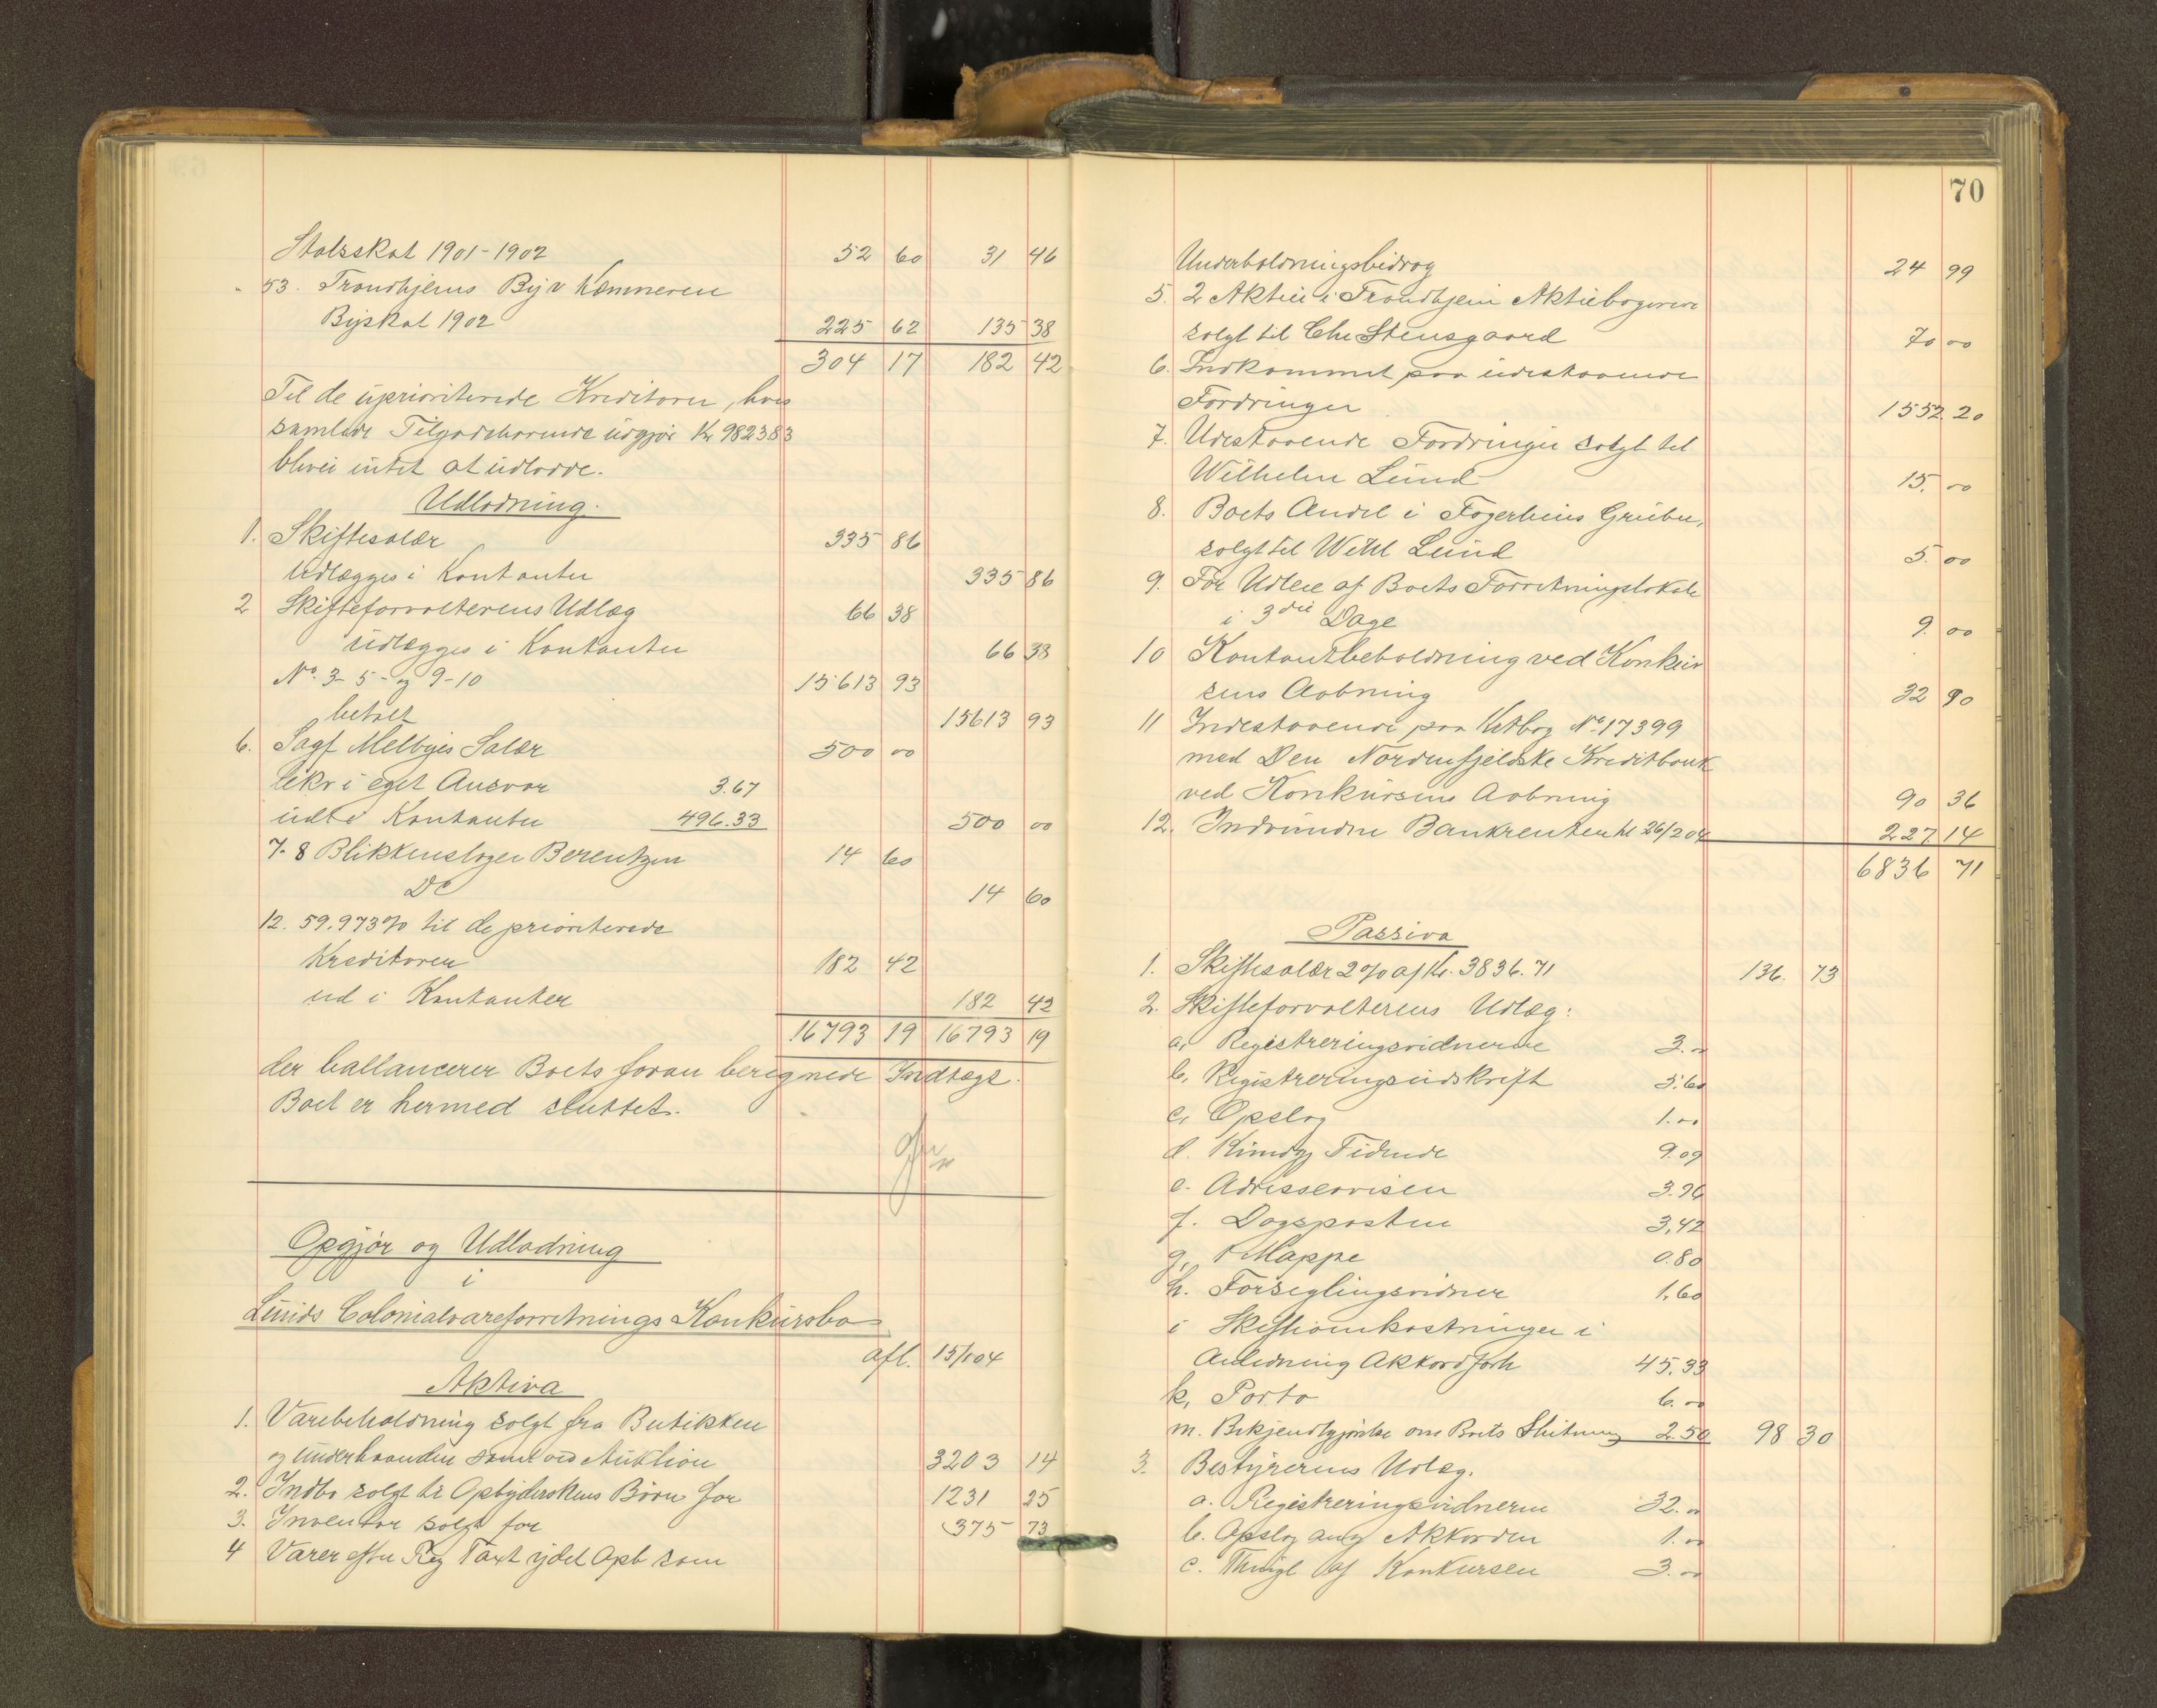 Statsskat 1901-1902 52 60 31 46
" 53. Trondhjems By v Kemneren
Byskat 1902 225 62 135 38
304 17 182 42
Til de uprioriterede Kreditorer, hvis
samlede Tilgodehavende udgjør Kr 982383
blevei intet at udlodde.
Udlodning.
1. Skiftesalær 335 86
Udlægges i Kontanter 335 86
2 Skifteforvalterens Udlæg 66 38
udlægges i Kontanter 66 38
No. 3-5- og 9-10 15613 93
betalt 15613 93
6. Sagf Melbyes Salær 500 00
likv i eget Ansvar 3.67
udl i Kontanter 496.33 500 00
7-8 Blikkenslager Berentzen 14 60
Do 14 60
12. 59.973% til de prioriterede
Kreditorer 182 42
ud i Kontanter 182 42
16793 19 16793 19
der ballancerer Boets foran beregnede Indtægt.
Boet er hermed sluttet.
Opgjør og Udlodning
i
Lunds Colonialvareforretnings Konkursbo
afl. 15/1 04
Aktiva
1. Varebeholdning solgt fra Butikken
og underhaanden samt ved Auktion 3203 14
2. Indbo solgt til Opbyderskens Børn for 1231 25
3. Inventar solgt for 375 73
4 Varer efter Reg Taxt ydet Opb som
70
Underholdningsbidrag 24 99
5. 2 Aktier i Trondhjem Aktiebageri
solgt til Chr Stensgaard 70 00
6. Indkommet paa udestaaende
Fordringer 1552 20
7. Udestaaende Fordringer solgt til
Wilhelm Lund 15. 00
8. Boets Andel i Fagerliens Gruber,
solgt til Wilh Lund 5. 00
9. For Udleie af Boets Forretningslokale
i 3die Dage 9. 00
10 Kontantbeholdning ved Konkur
sens Aabning 32 90
11 Indestaaende paa Ktrbog No 17399
med Den Nordenfjeldske Kreditbank
ved Konkursens Aabning 90 36
12. Indvundne Bankrenter til 26/2 04 227 14
6836 71
Passiva
1. Skiftesalær 2% af Kr. 3836.71 136. 73
2. Skifteforvalterens Udlæg:
a, Registreringsvidnerne 3.00
b, Registreringsudskrift 5.60
c, Opslag 1.00
d. Kundg Tidende 9.09
e. Adresseavisen 3.96
f. Dagsposten 3,42
g, 1 Mappe 0.80
h. Forseglingsvidner 1,60
i Skifteomkostninger i
Anledning Akkordforh 45,33
k, Porto 6.00
m. Bekjendtgjørelse om Boets Slutning 2.50 98 30
3. Bestyrerens Udlæg.
a. Registreringsvidnerne 32.00
b. Opslag ang Akkorden 1.00
c. Thingl af Konkursen 3.00